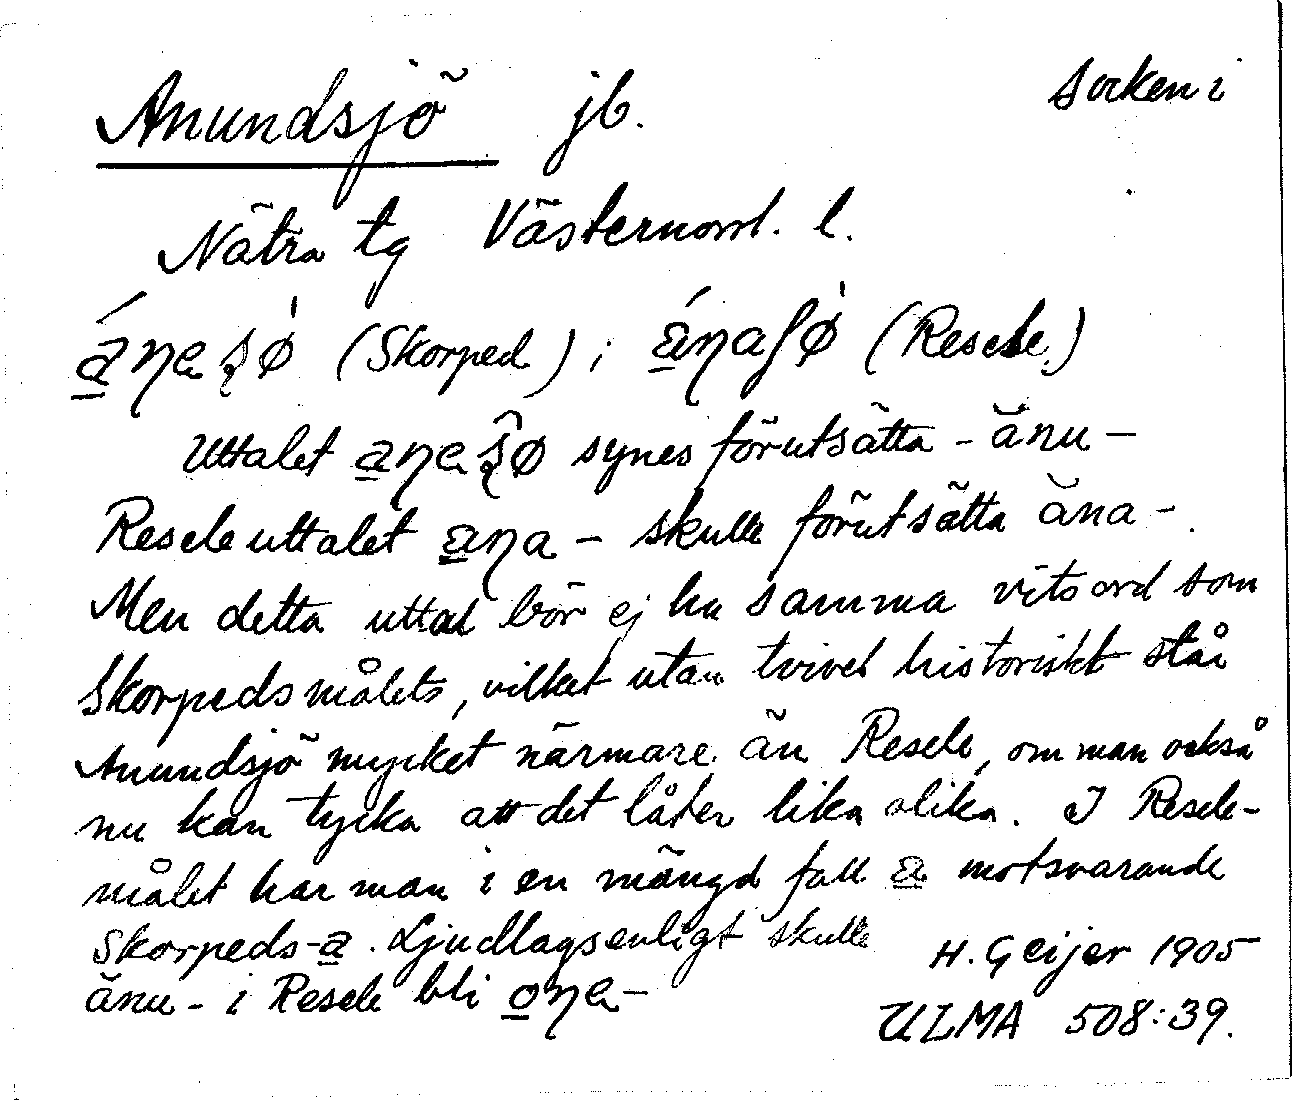 Anundsjö jb. Socken i
Nätra tg Västernorrl. l.
(Skorped) ; (Resele)
Uttalet synes förutsätta - ănu -
Resele uttalet - skulle förutsätta ăna -.
Men detta uttal bör ej ha samma vitsord som
Skorpedsmålets, vilket utan tvivel historiskt står
Anundsjö mycket närmare än Resele, om man också
nu kan tycka att det låter lika olika. I Resele-
målet har man i en mängd fall a motsvarande
Skorpeds-a. Ljudlagsenligt skulle
ănu - i Resele bli
H. Geijer 1905
ULMA 508:39.